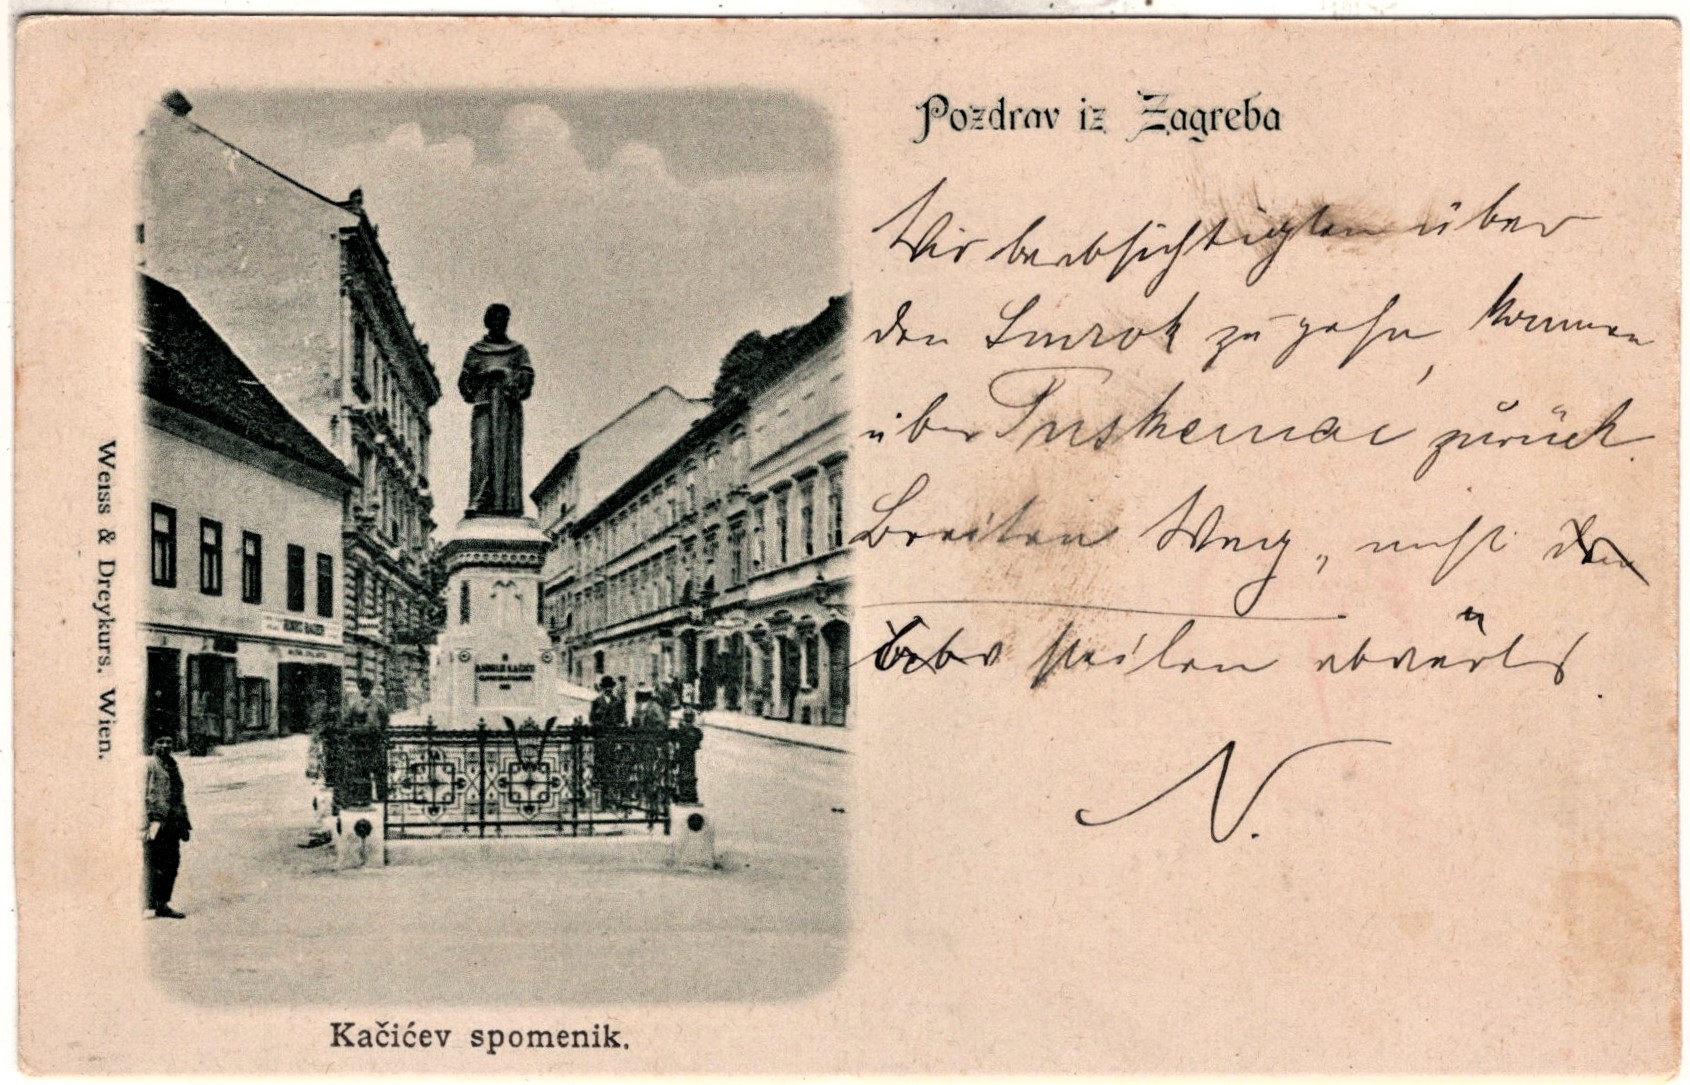 Pozdrav iz Zagreba
Wir beabsichtigten über
den Smrok zu gehn, kommen
über Tuskanac zurück.
Breiten Weg, nicht den
steilen abwärts.
N.
Weiss & Dreykurs. Wien.
Kačićev spomenik.